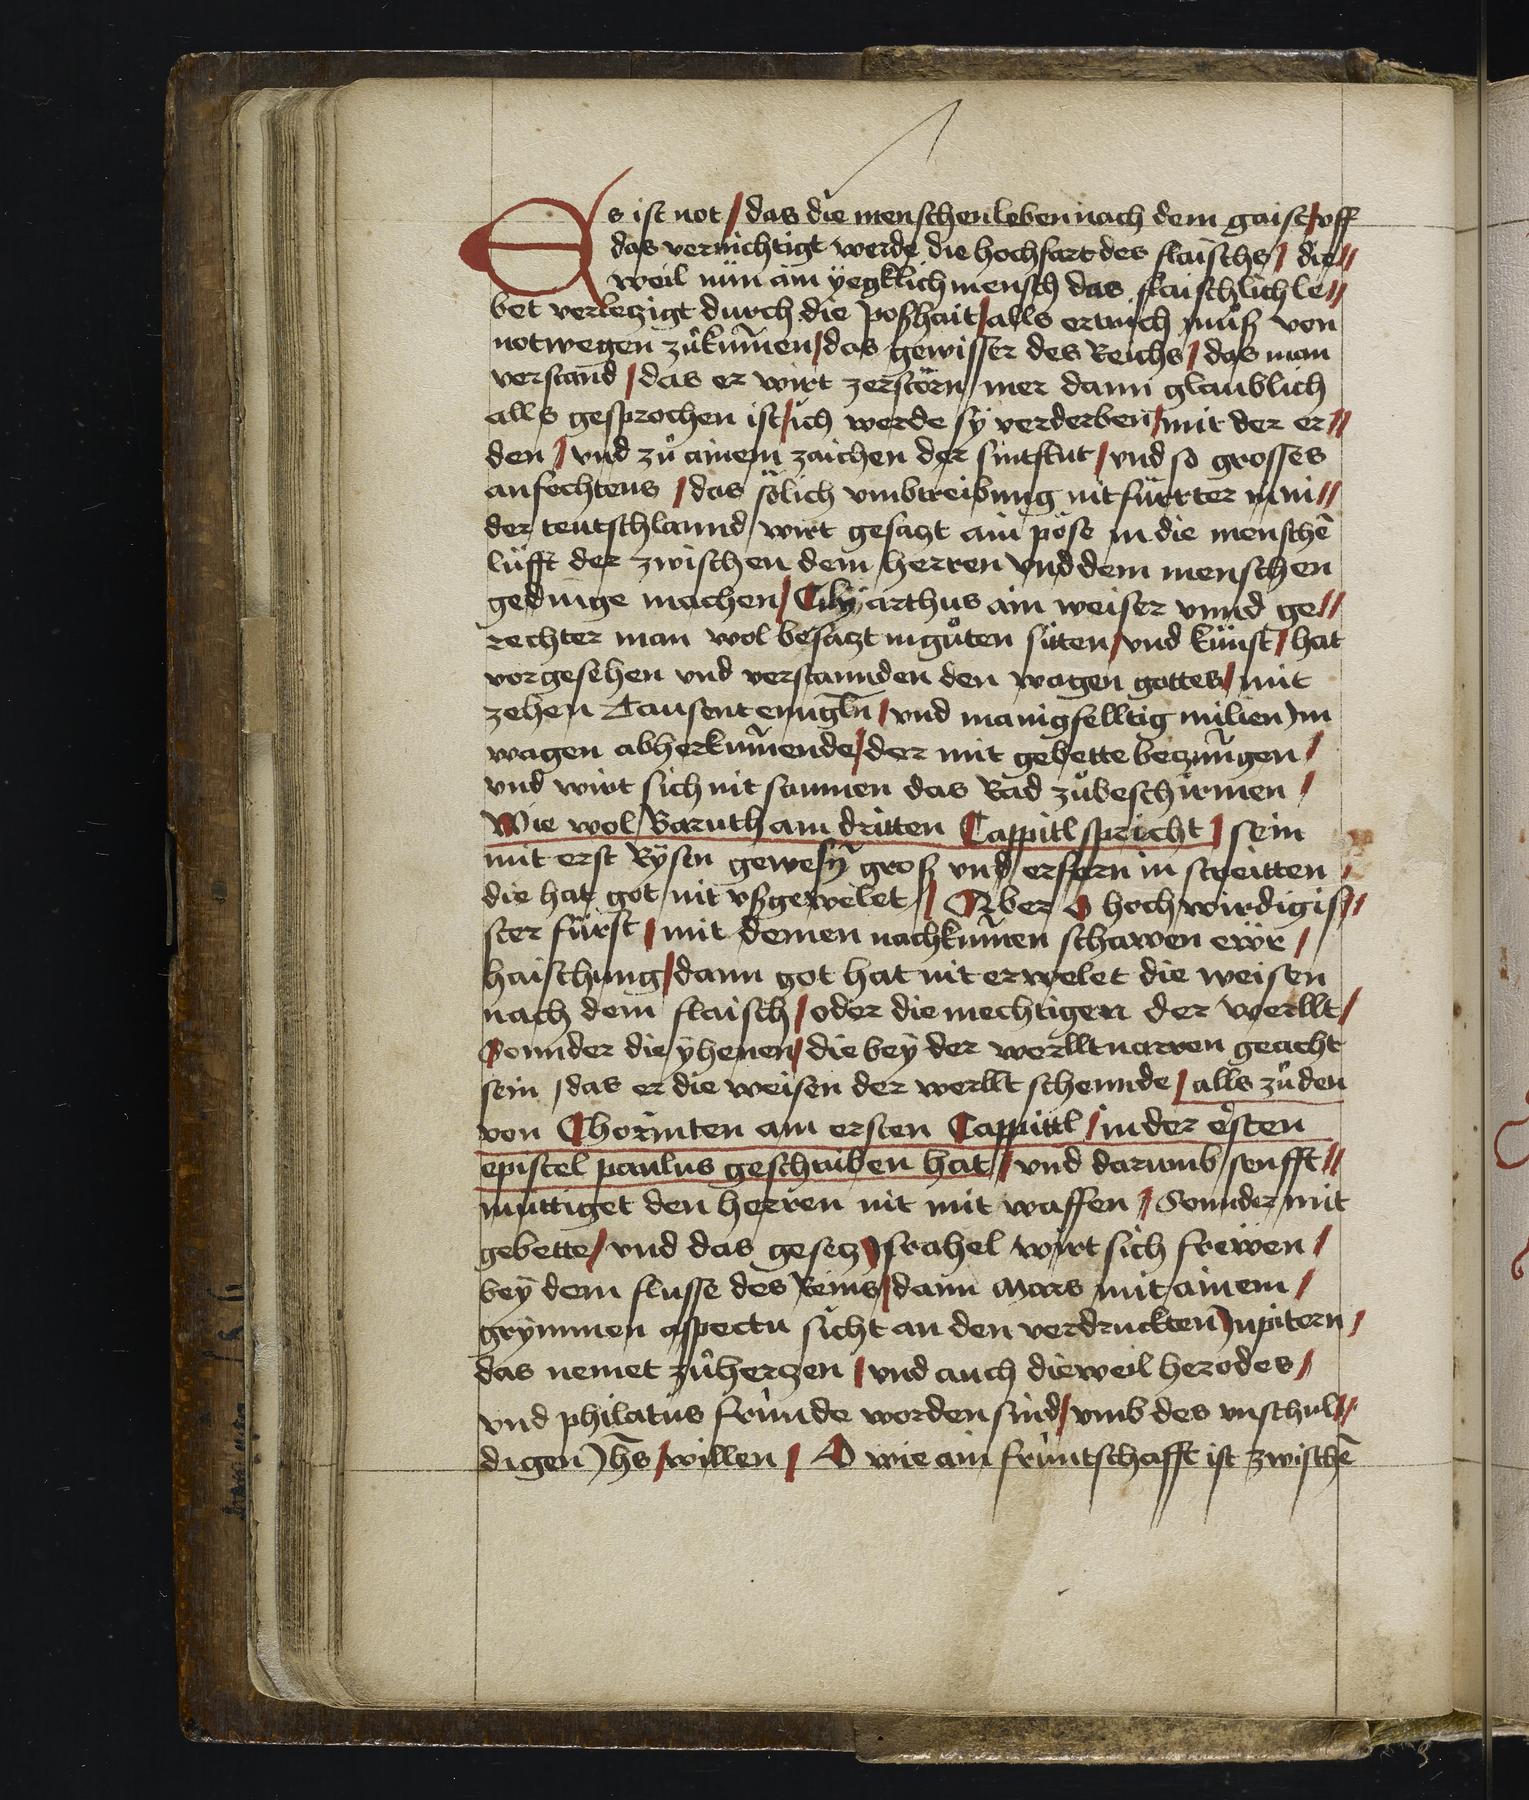 Es ist not / das die menschen leben nach dem gaist / uff
das vernichtigt werde die hochfart des flaischs / die //
weil nün ain yegklich mensch das flaischlich le //
bet verletzigt durch die poßhait / alls ertrich můß von
notwegen zůkum̄en / das gewisser des Reichs / das man
verstand / das er wirt zerstörn / mer dann glaublich
alls gesprochen ist / ich werde sy verderben / mit der er //
den / vnd zů ainem zaichen der sintflut / vnd so grosses
anfechtens / das sölich vmbtreibung nit fürter in ni //
der teutschlannd / wirt gesatzt ain pöse in die menschē
lüfft der zwischen dem herren vnd dem menschen
gedinge machen / Cilyarthus ain weiser vnnd ge //
rechter man wol besatzt in gůten sitten / vnd künst / hat
vorgesehen vnd verstannden den wagen gottes / mit
zehen Tausent enngln̄ / vnd manigfelltig milien Im
wagen abherkum̄ende / der mit gebette bezwūgen /
vnd wirt sich nit saumen das Rad zůbeschirmen /
Wie wol Baruth am dritten Cappitl spricht / sein
mit erst Rysen gewesn̄ groß vnd erfern in streitten /
die hat got nit vßgewelet / Aber O hochwirdigis //
ster fürst / mit demen nachkum̄en schawen ewr /
haischung / dann got hat nit erwelet die weisen
nach dem flaisch / oder die mechtigen der werllt /
Sonnder die yhenen / die bey der werllt narren geacht
sein / das er die weisen der werllt schennde / alls zů den
von Chorinten am ersten Cappittl / in der ersten
epistel paulus geschriben hat / vnd darumb senfft //
muttiget den herren nit mit waffen / Sonnder mit
gebette / vnd das gesetz Israhel wirt sich frewen /
bey dem flusse des Reins / dann Mars mit ainem /
grymmen aspectu sicht an den verdruckten Jupitern /
das nemet zůhertzen / vnd auch dieweil herodes /
vnd philatus frunde worden sind / vmb des vnschul //
digen Ihs̄ willen / O wie ain fruntschafft ist zwischē